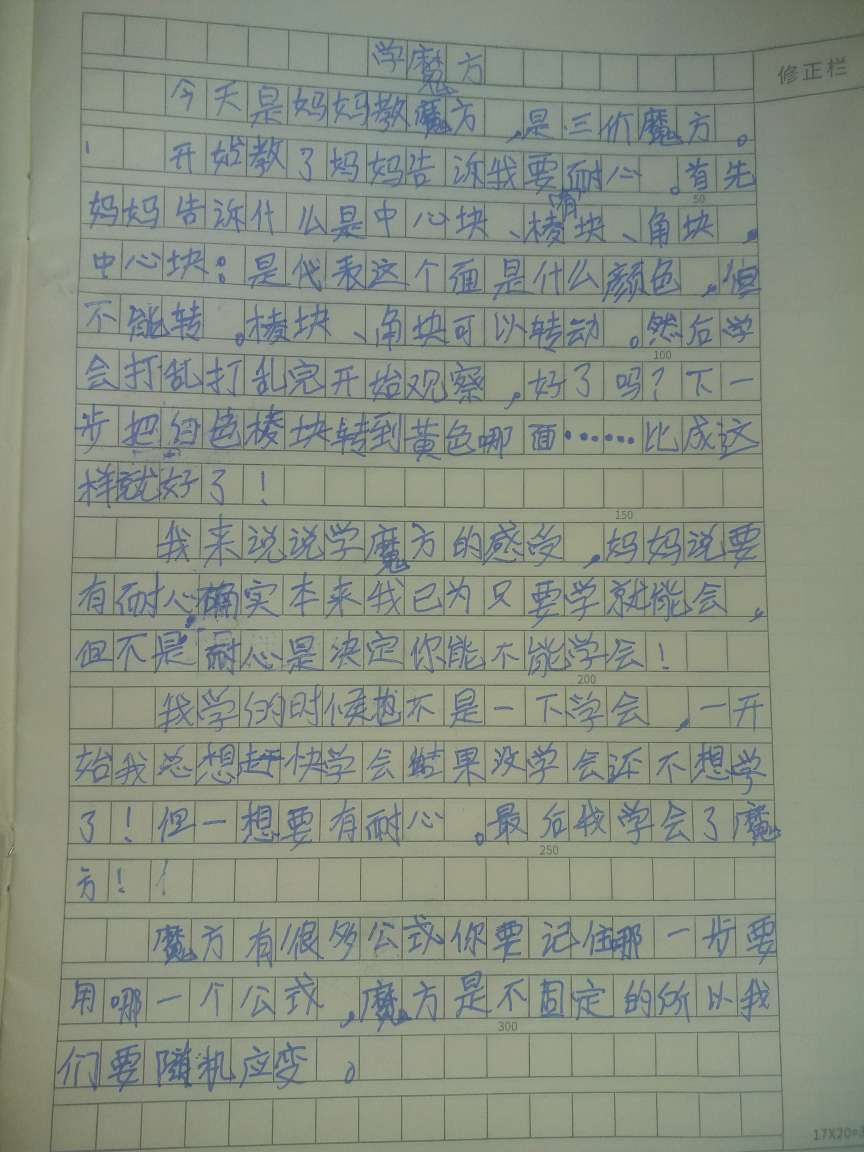 学魔方
修正栏
今天是妈妈教魔方，是三价魔方。
开始教了妈妈告诉我要耐心。首先
50
妈妈告诉什么是中心块、棱块、角块，
有
中心块：是代表这个面是什么颜色，但
不能转。棱块、角块可以转动。然后学
100
会打乱打乱完开始观察，好了吗？下一
步把白色棱块转到黄色哪面……比成这
样就好了！
150
我来说说学魔方的感受，妈妈说要
有耐心，确实本来我已为只要学就能会，
但不是耐心是决定你能不能学会！
200
我学的时候也不是一下学会，一开
始我总想赶快学会结果没学会还不想学
了！但一想要有耐心。最后我学会了魔
250
方！
魔方有很多公式你要记住哪一步要
用哪一个公式，魔方是不固定的所以我
300
们要随机应变。
17X20=3